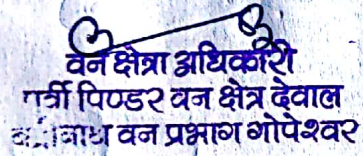 वन क्षेत्रा अधिकारी
पूर्वी पिण्डर वन क्षेत्र देवाल
बद्रीनाथ वन प्रभाग गोपेश्वर